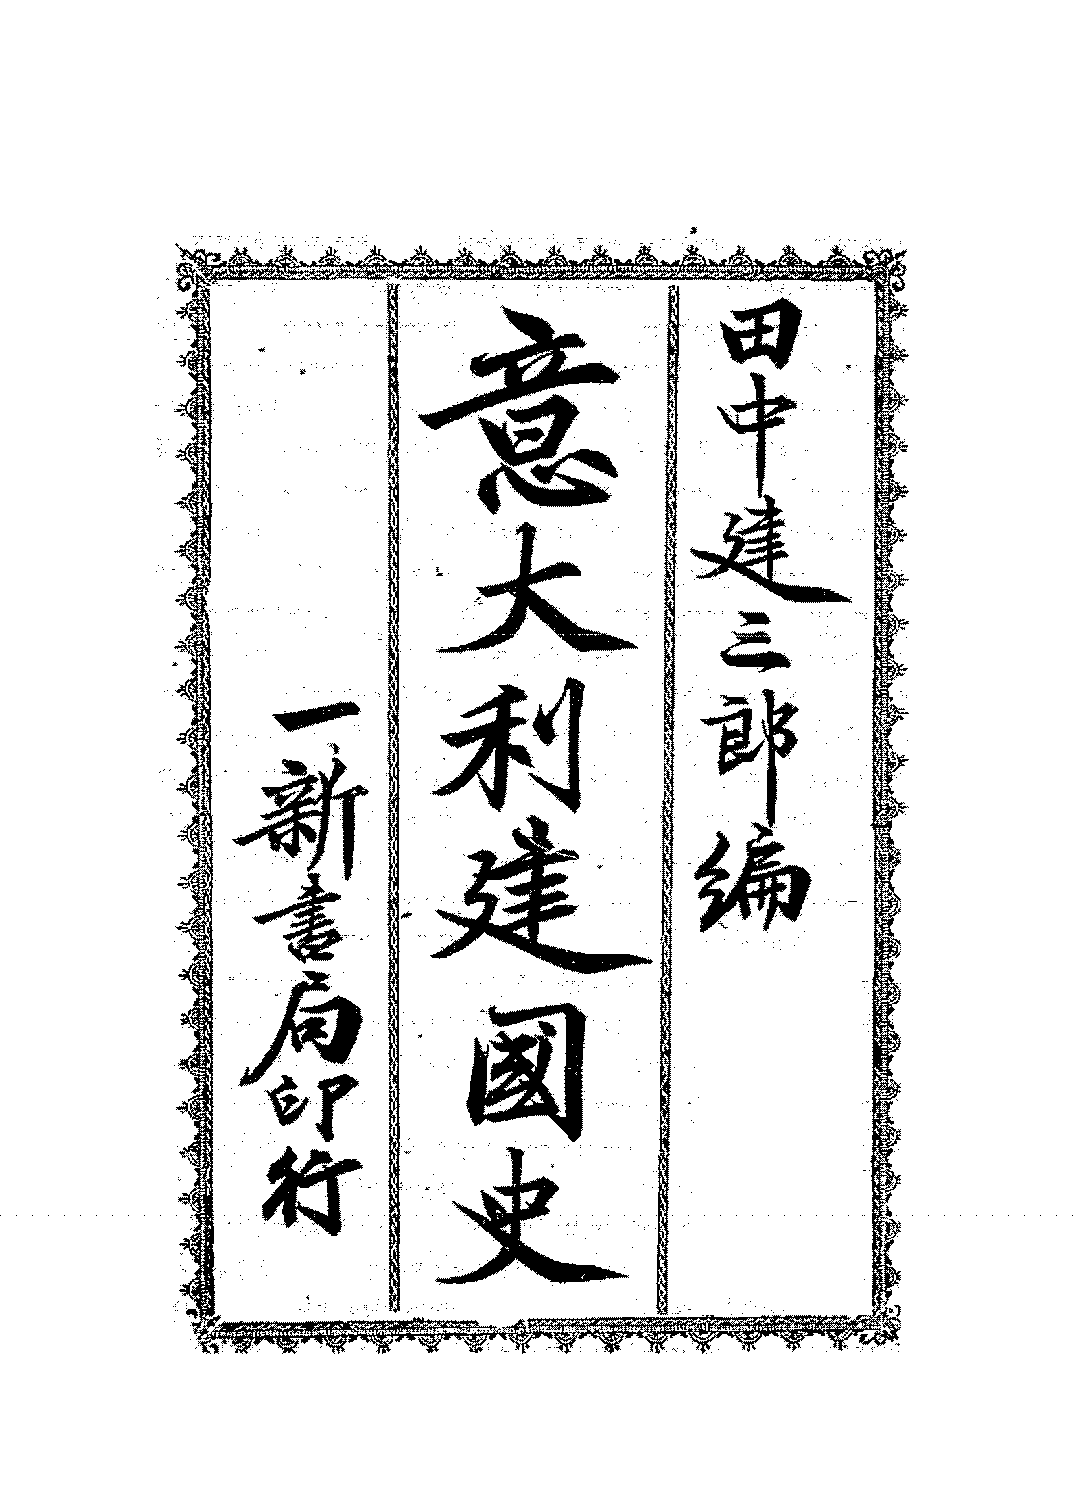 田中建三郎編
意大利建國史
一新書局印行